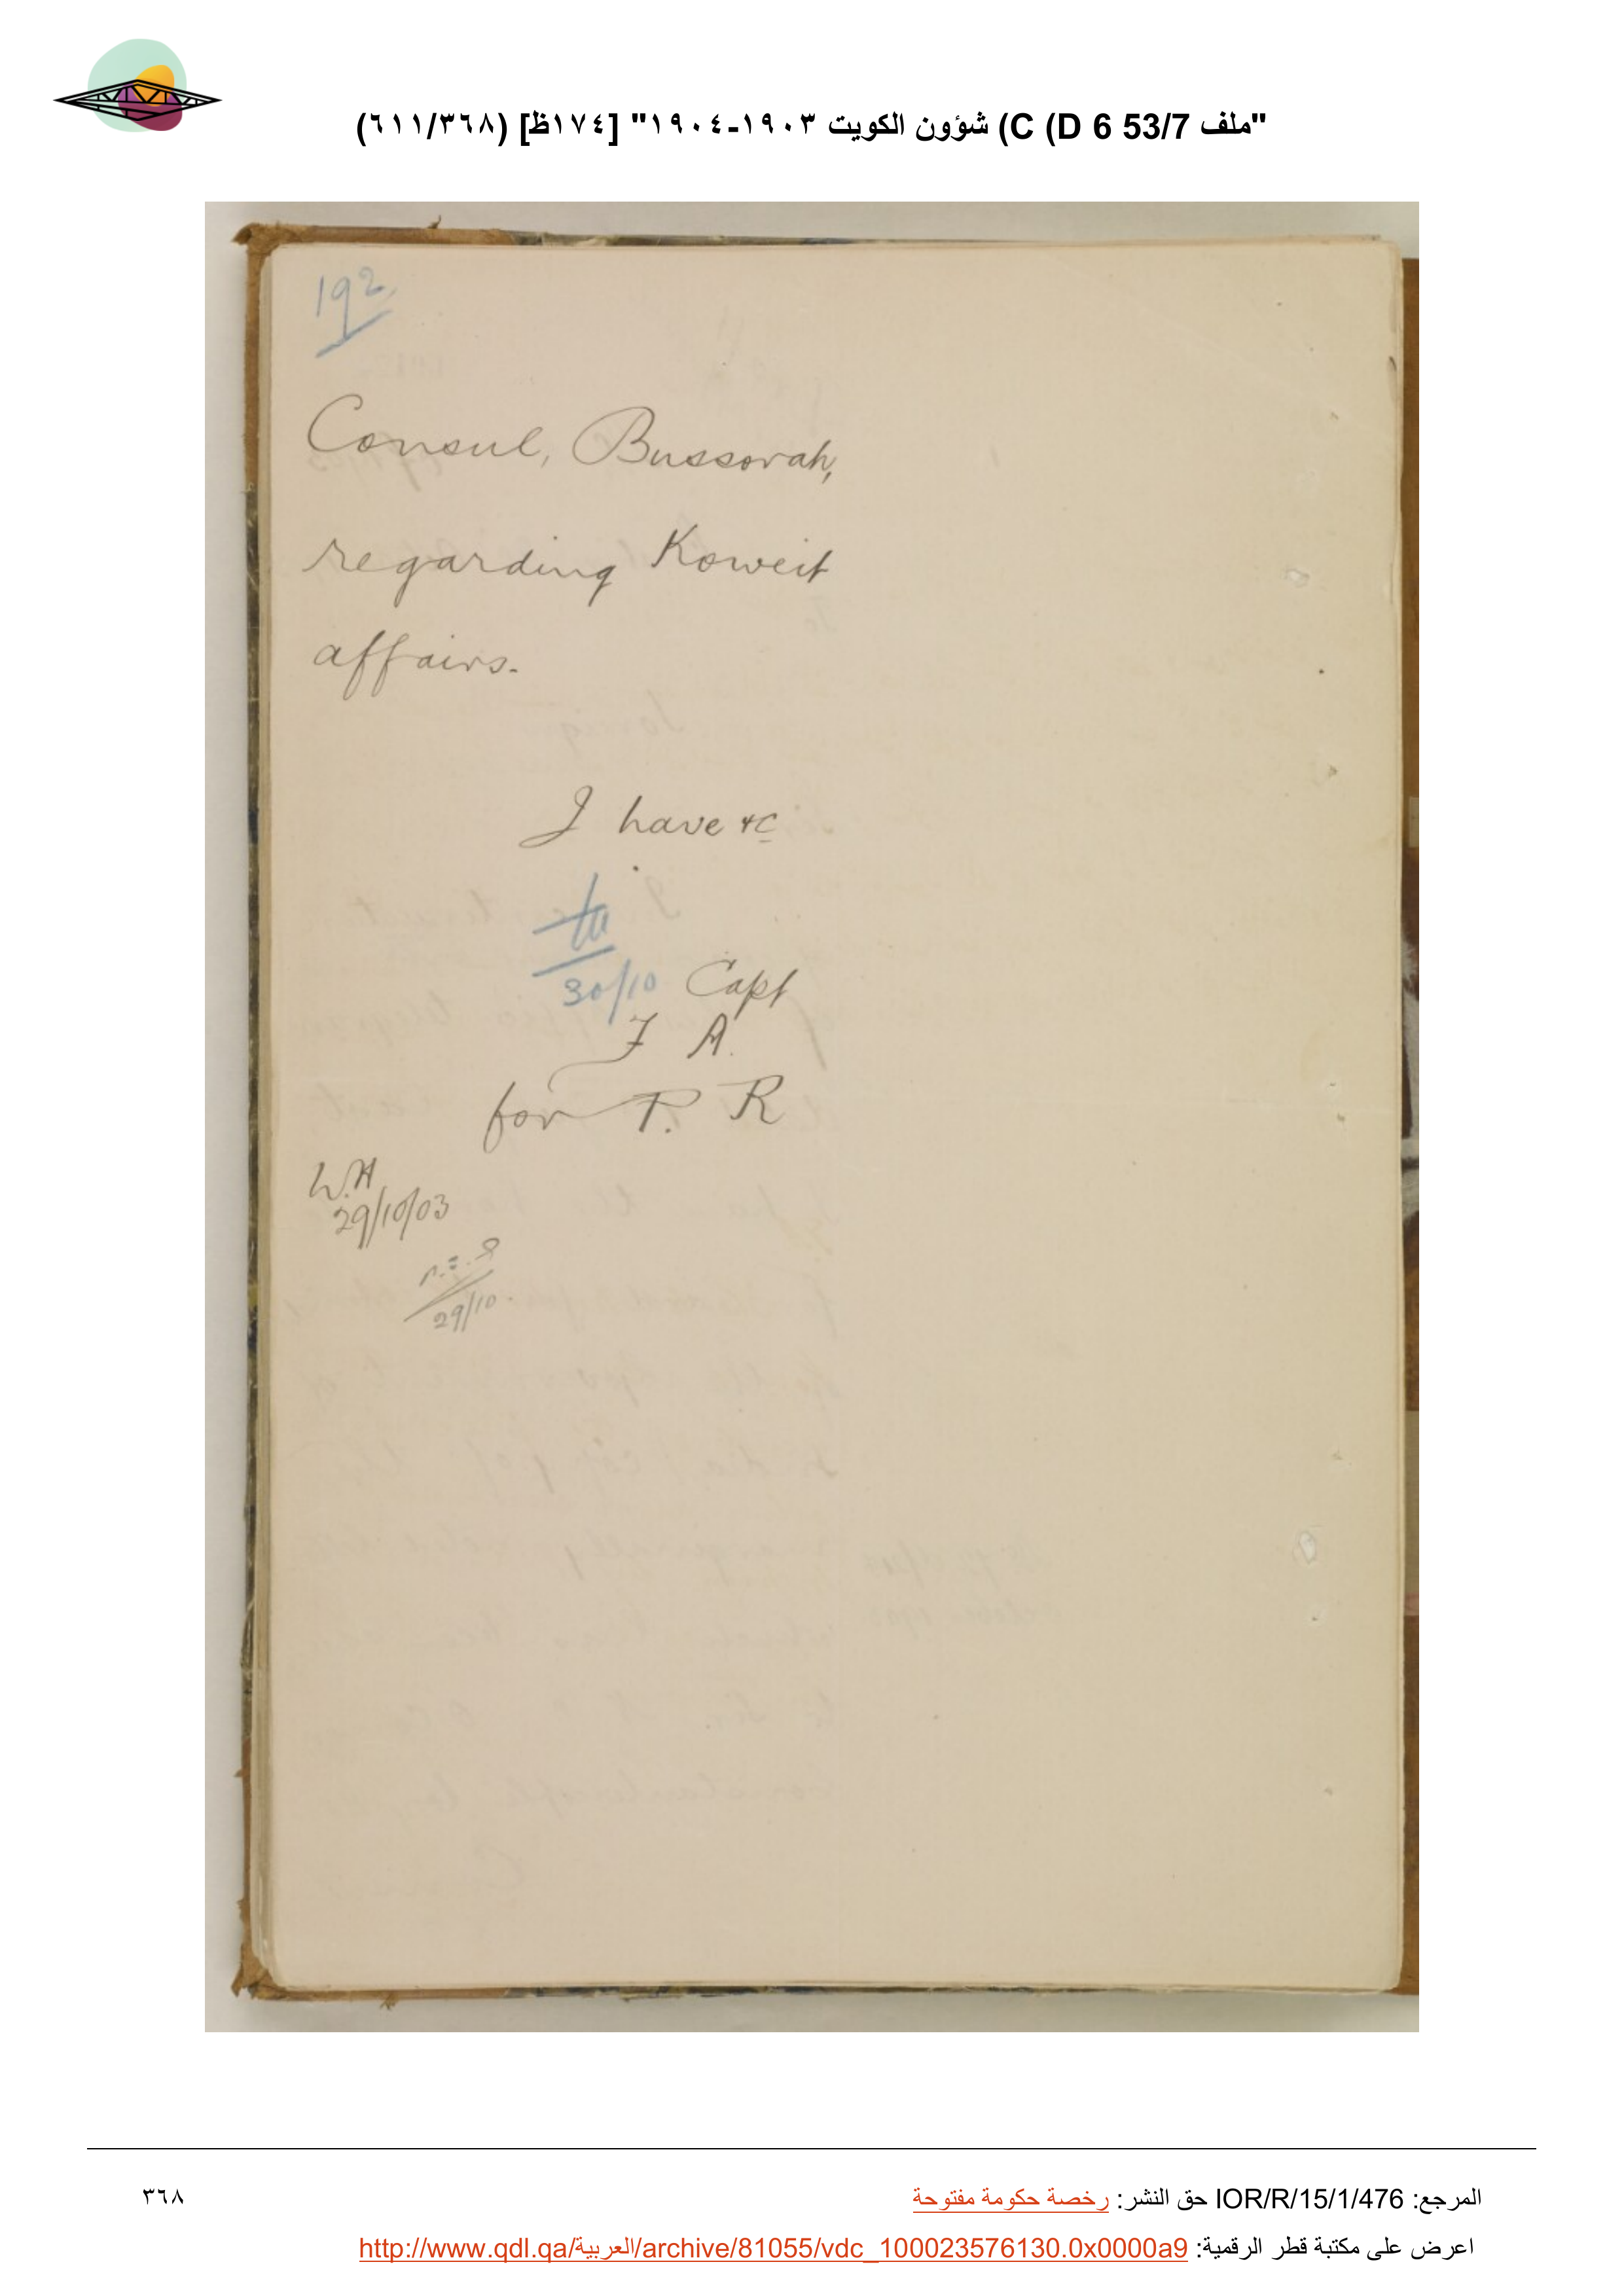 "ملف 53/7 D 6) C) شؤون الكويت ١٩٠٣-١٩٠٤" [١٧٤ظ] (٦١١/٣٦٨)
192
Consul, Bussorah,
regarding Koweit
affairs.
I have &c
30/10 Capt
F A.
for P. R
W.H
29/10/03
29/10.
المرجع: IOR/R/15/1/476 حق النشر: رخصة حكومة مفتوحة
٣٦٨
اعرض على مكتبة قطر الرقمية: http://www.qdl.qa/العربية/archive/81055/vdc_100023576130.0x0000a9